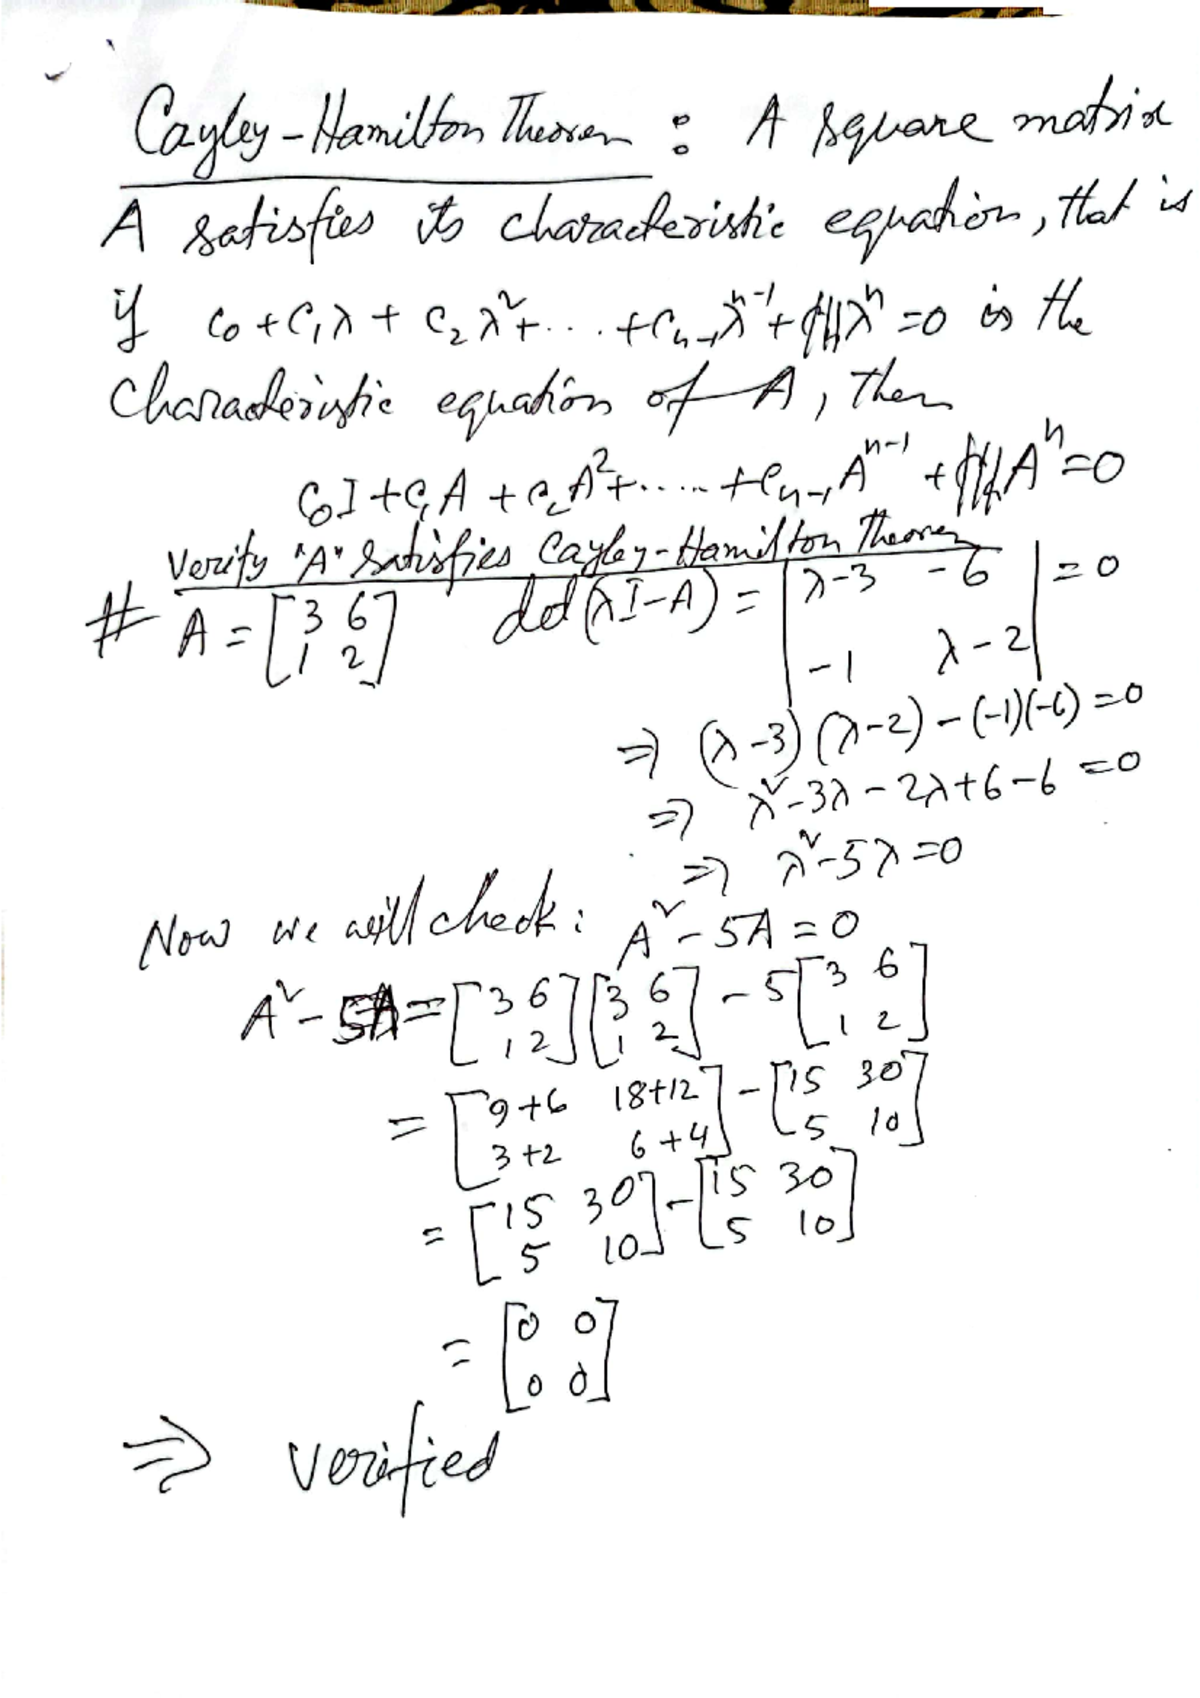 Cayley-Hamilton Theorem : A square matrix
A satisfies its characteristic equation, that is
if c₀ + c₁λ + c₂λ² + ... + cₙ₋₁λⁿ⁻¹ + λⁿ = 0 is the
characteristic equation of A, then
c₀I + c₁A + c₂A² + ..... + cₙ₋₁Aⁿ⁻¹ + Aⁿ = 0
Verify "A" satisfies Cayley-Hamilton Theorem
# A = [3 6; 1 2] det(λI-A) = |λ-3 -6; -1 λ-2| = 0
⇒ (λ-3)(λ-2) - (-1)(-6) = 0
⇒ λ² - 3λ - 2λ + 6 - 6 = 0
⇒ λ² - 5λ = 0
Now we will check: A² - 5A = 0
A² - 5A = [3 6; 1 2][3 6; 1 2] - 5[3 6; 1 2]
= [9+6 18+12; 3+2 6+4] - [15 30; 5 10]
= [15 30; 5 10] - [15 30; 5 10]
= [0 0; 0 0]
⇒ verified